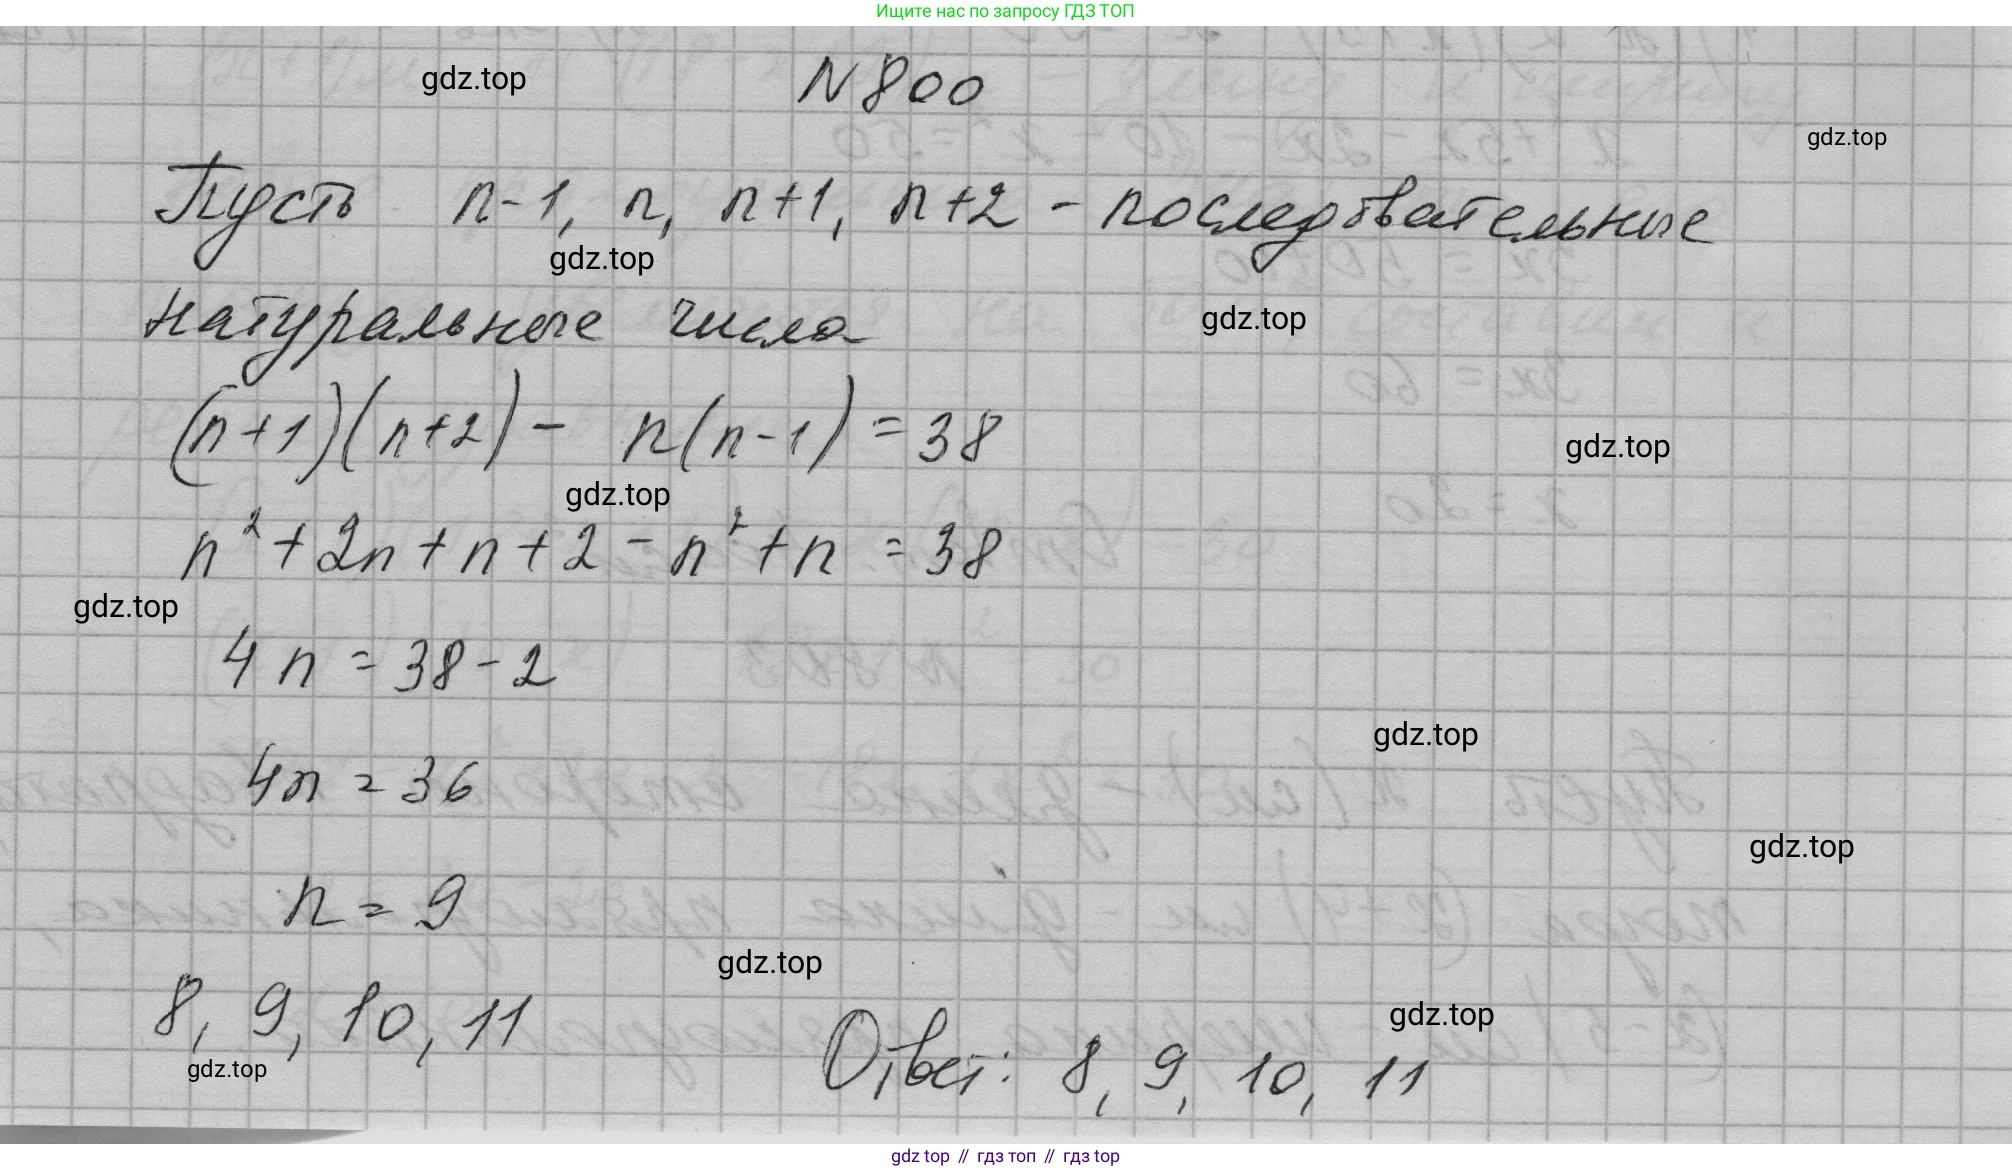 Ищите нас по запросу ГДЗ ТОП
gdz.top
N 800
gdz.top
Пусть n-1, n, n+1, n+2 - последовательные
gdz.top
натуральные числа
gdz.top
(n+1)(n+2) - n(n-1) = 38
gdz.top
gdz.top
n²+2n+n+2-n²+n = 38
gdz.top
4n = 38-2
gdz.top
4n = 36
gdz.top
n = 9
gdz.top
8, 9, 10, 11
gdz.top
gdz.top
Ответ: 8, 9, 10, 11
gdz top // гдз топ // гдз top